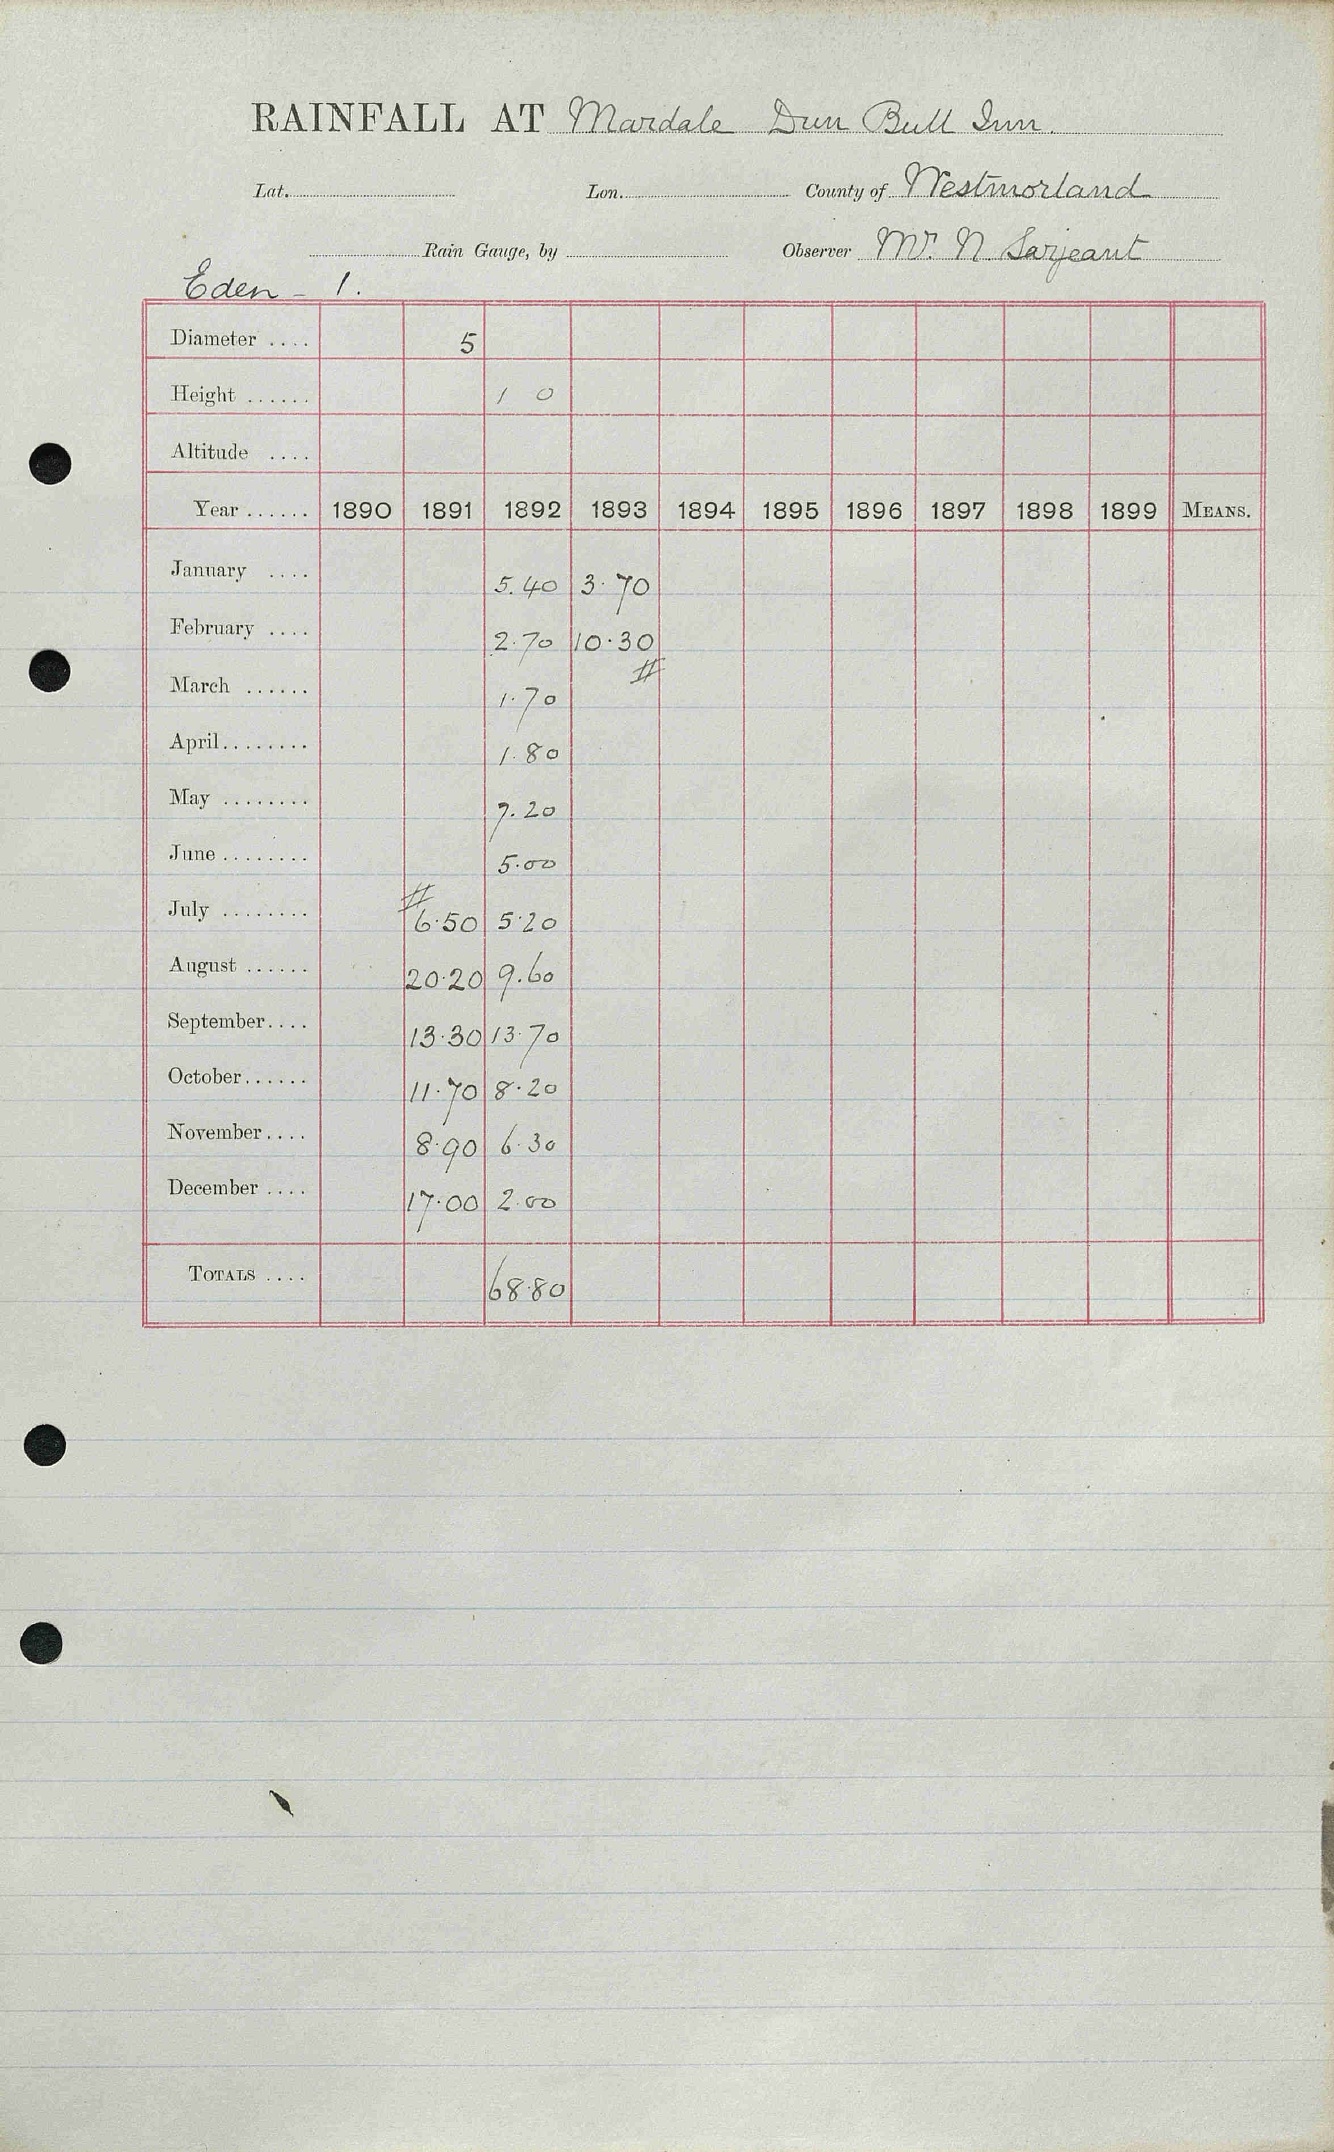 RAINFALL AT Mardale Dun Bull Inn.
Lat. Lon. County of Westmorland
Rain Gauge, by Observer Mr. N Sarjeant
Eden - 1.
Diameter .... 5
Height ...... 1 0
Altitude ....
Year ...... 1890 1891 1892 1893 1894 1895 1896 1897 1898 1899 MEANS.
January .... 5.40 3.70
February .... 2.70 10.30
March ...... 1.70 #
April........ 1.80
May ........ 7.20
June ........ 5.00
July ........ # 6.50 5.20
August ...... 20.20 9.60
September.... 13.30 13.70
October...... 11.70 8.20
November.... 8.90 6.30
December .... 17.00 2.00
TOTALS .... 68.80